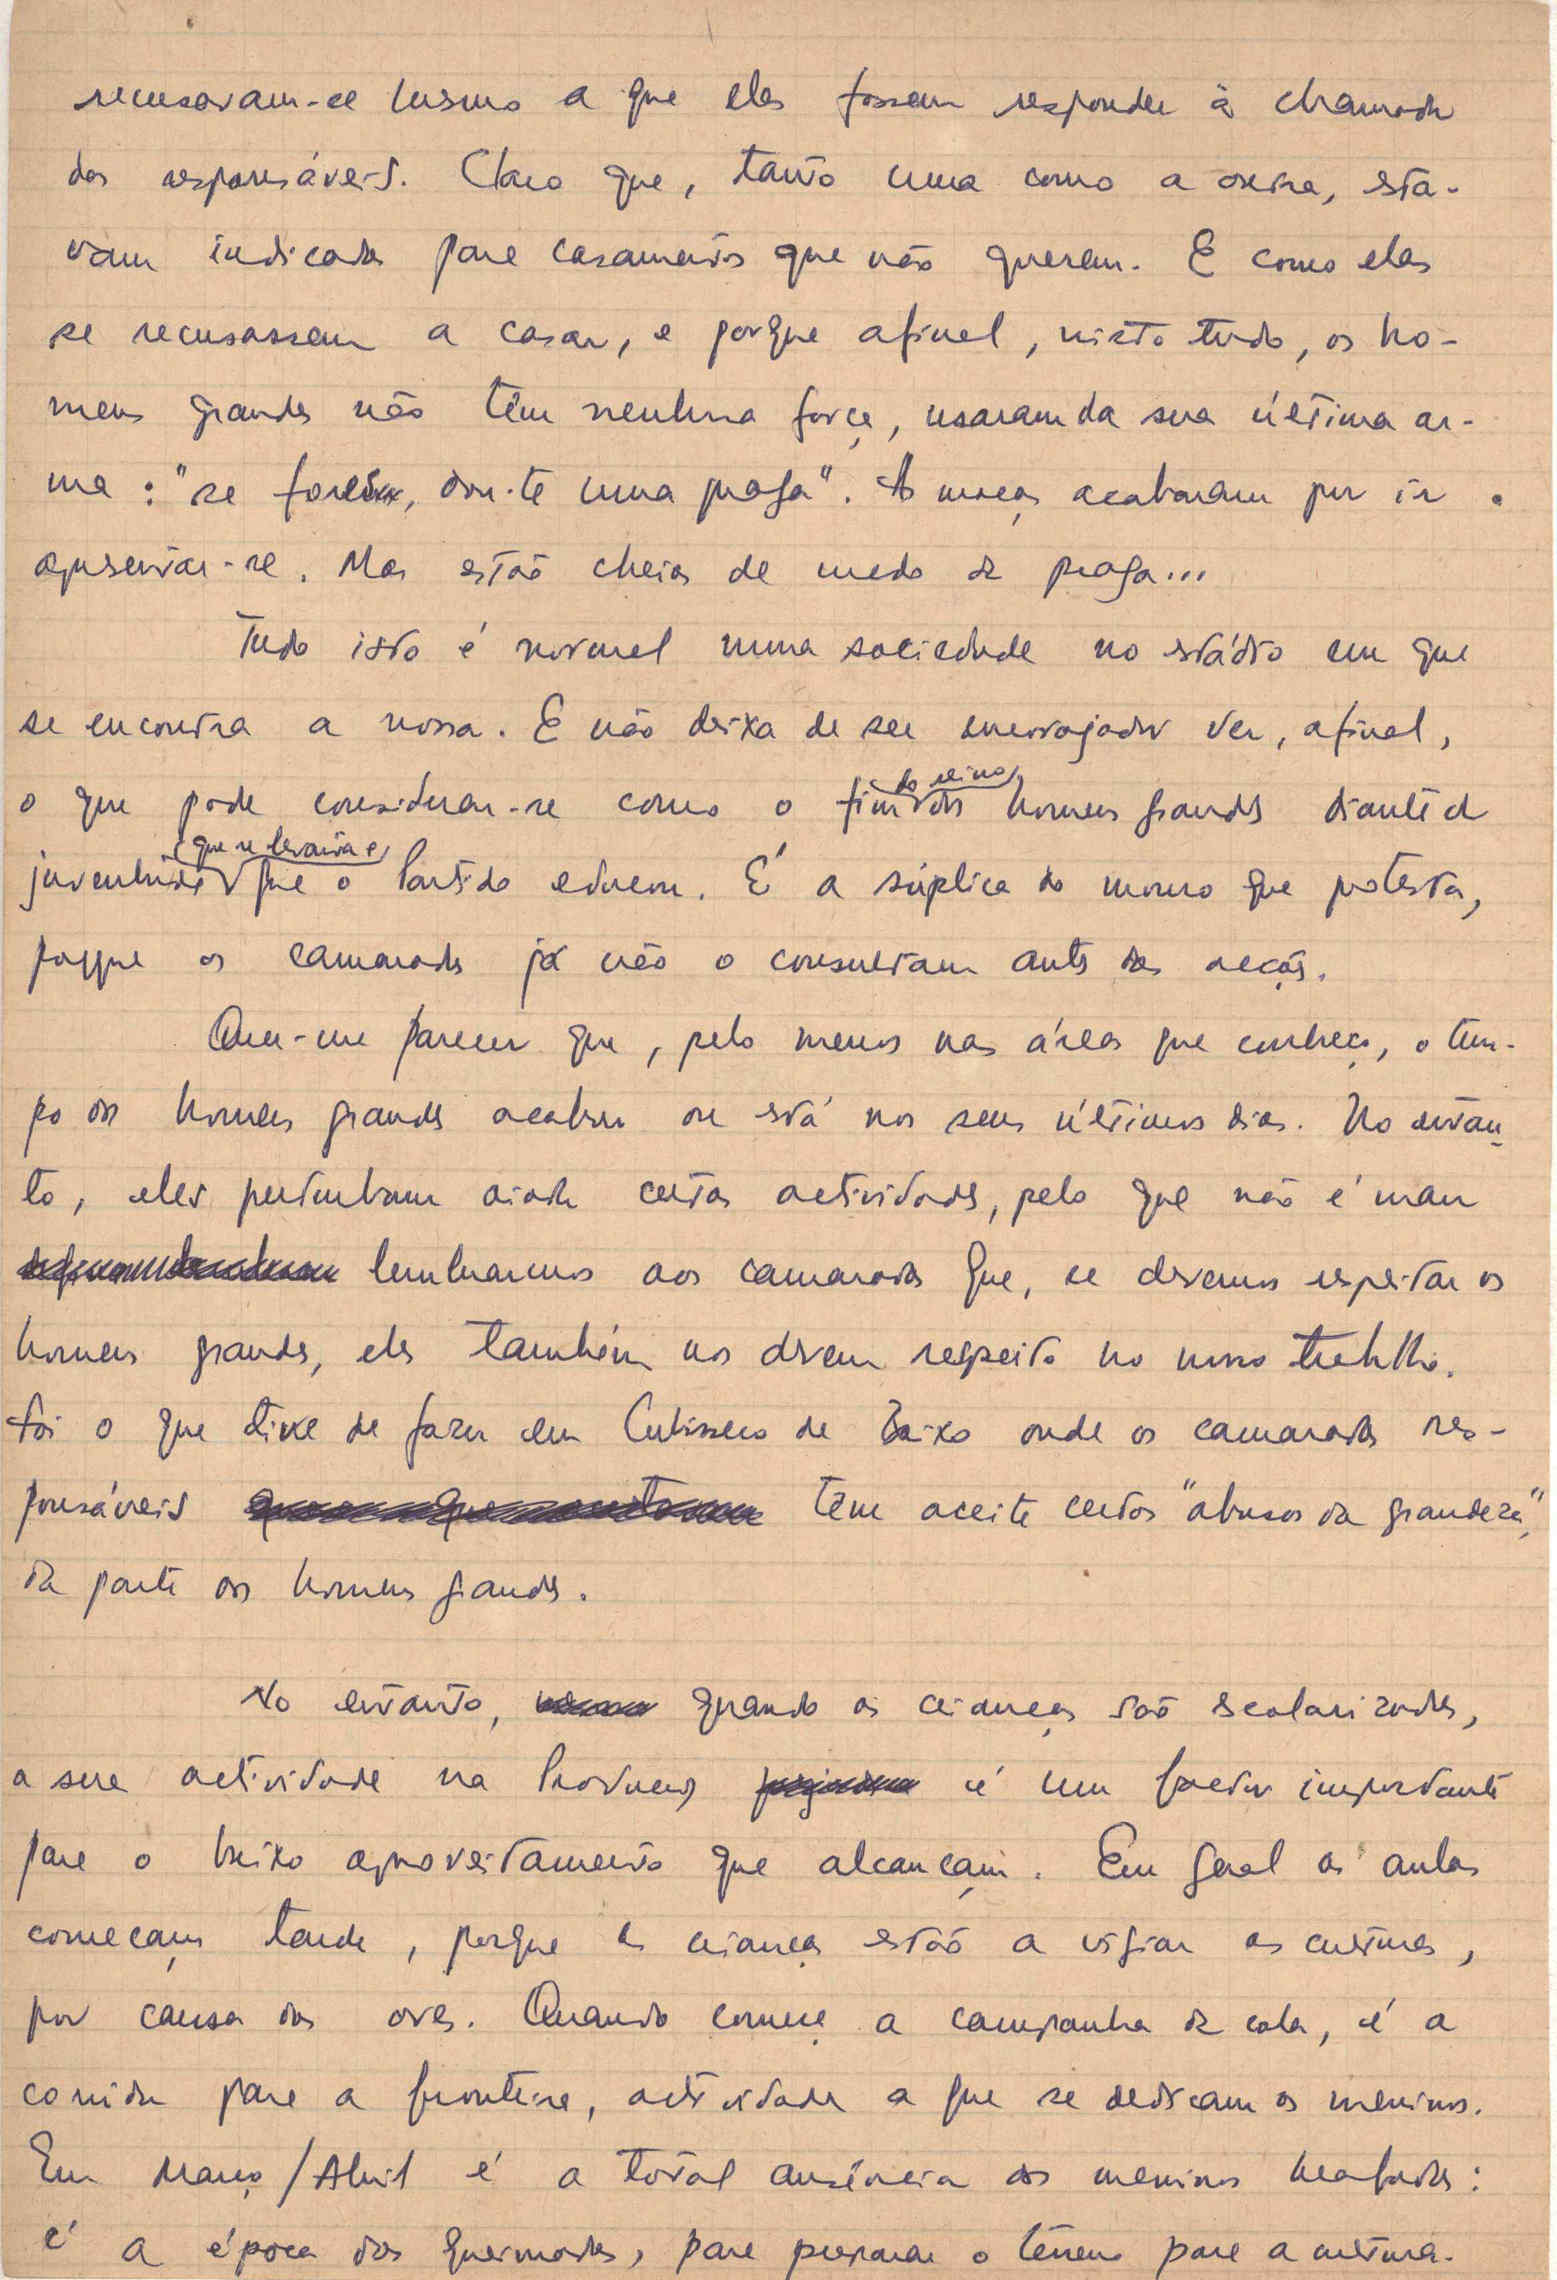 recusavam-se mesmo a que elas fossem responder à chamada
dos responsáveis. Claro que, tanto uma como a outra, esta-
vam indicadas para casamentos que não queriam. E como elas
se recusassem a casar, e porque afinal, nisto tudo, os ho-
mens grandes não têm nenhuma força, usaram da sua última ar-
ma: "se fores, dou-te uma praga". As moças acabaram por ir
apresentar-se. Mas estão cheias de medo da praga...
Tudo isto é normal numa sociedade no estádio em que
se encontra a nossa. E não deixa de ser encorajador ver, afinal,
o que pode considerar-se como o fim do reino dos homens grandes diante da
juventude que se levanta e que o Partido educou. É a súplica do mouro que protesta,
porque os camaradas já não o consultam antes das acções.
Quer-me parecer que, pelo menos nas áreas que conheço, o tem-
po dos homens grandes acabou ou está nos seus últimos dias. No entan-
to, eles perturbam ainda certas actividades, pelo que não é mau
lembrarmos aos camaradas que, se devemos respeitar os
homens grandes, eles também nos devem respeito no nosso trabalho.
Foi o que tive de fazer em Cubisseco de Baixo onde os camaradas res-
ponsáveis têm aceite certos "abusos da grandeza",
da parte dos homens grandes.
No entanto, quando as crianças são escolarizadas,
a sua actividade na Produção é um factor importante
para o baixo aproveitamento que alcançam. Em geral as aulas
começam tarde, porque as crianças estão a vigiar as culturas,
por causa das aves. Quando começa a campanha da cola, é a
corrida para a fronteira, actividade a que se dedicam os meninos.
Em Março/Abril é a total ausência dos meninos beafadas:
é a época das queimadas, para preparar o terreno para a cultura.